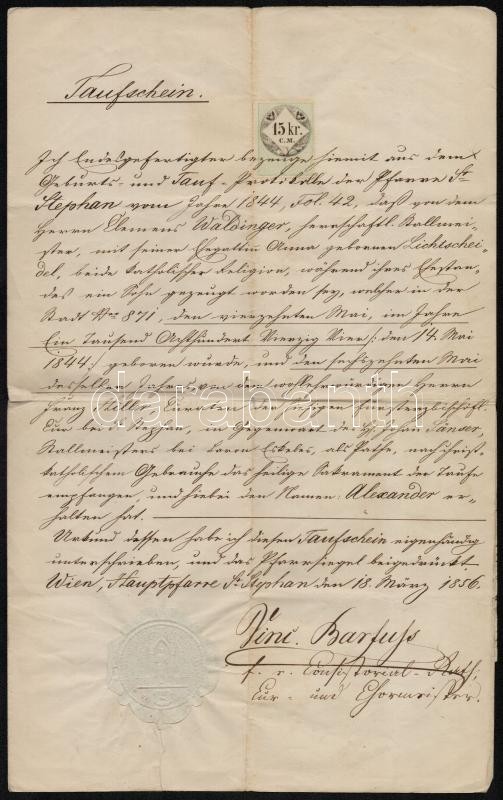 Taufschein.
15 kr.
C.M.
Ich Endesgefertigter bezeuge hiemit aus dem
Geburts- und Tauf-Protokolle der Pfarre St
Stephan vom Jahre 1844, Fol. 42, daß von dem
Herrn Clemens Waldinger, herrschaftl. Stallmei-
ster, mit seiner Ehegattin Anna geborenen Lichtschei-
del, beide katholischer Religion, während ihres Ehestan-
des ein Sohn gezeugt worden sey, welcher in der
Stadt Nro 871, den vierzehnten Mai, im Jahre
Ein Tausend Achthundert Vierzig Vier /: den 14. Mai
1844 :/ geboren wurde, und den sechszehnten Mai
desselben Jahres von dem wohlehrwürdigen Herrn
Franz Curaten der hiesigen fürsterzbischöfl.
Cur bei St Stephan, in Gegenwart des H. Johan Sänser,
Stallmeisters bei Baron Eskeles, als Pathe, nach christ-
katholischem Gebrauche das heilige Sakrament der Taufe
empfangen, und hiebei den Namen: Alexander er-
halten hat.
Urkund dessen habe ich diesen Taufschein eigenhändig
unterschrieben, und das Pfarrsiegel beigedrückt.
Wien, Hauptpfarre St Stephan den 18. März 1856.
Vinc. Barfuss
f. e. Consistorial-Rath,
Cur- und Chormeister.
darabanth